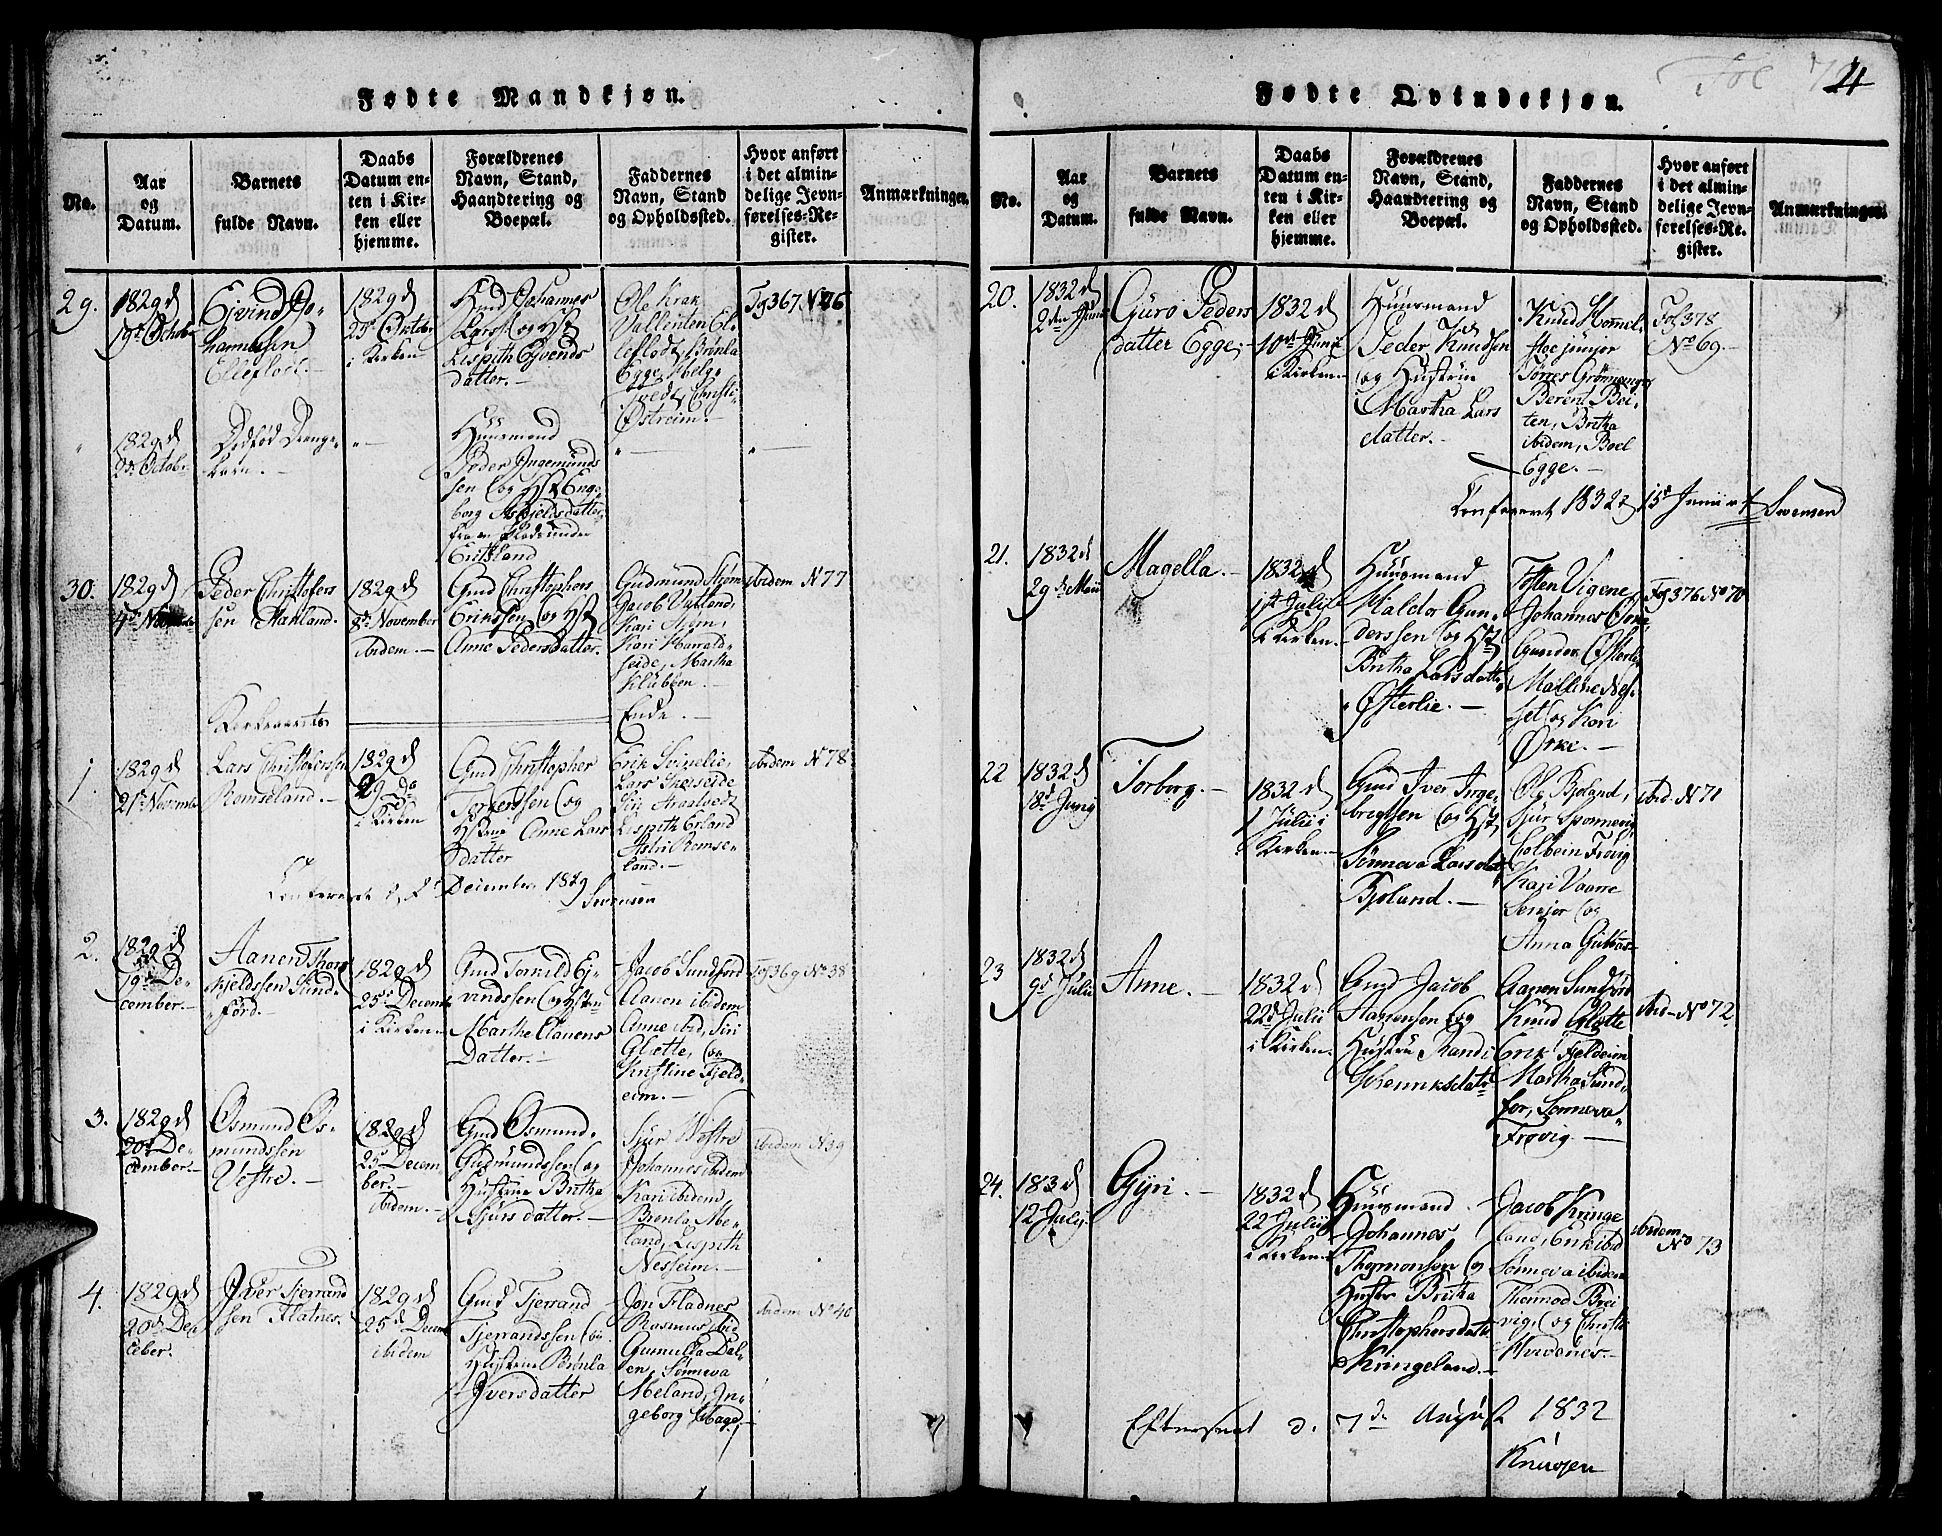 Fødte Mandkjøn.
No.
Aar
og
Datum.
Barnets
fulde Navn.
Daabs
Datum en-
ten i Kir-
ken eller
hjemme.
Forældrenes
Navn, Stand,
Haandtering og
Boepæl.
Faddernes
Navn, Stand
og Opholdssted.
Hvor anført
i det almin-
delige Jevn-
førelses-Re-
gister.
Anmærkninger.
29.
1829 d
19de Octobr
Ejvind Jo-
hannessen
Elleflodt.
1829 d
25de Octobr
i Kirken
Gmd Johannes
Larss. og Hst
Lispith Ejvends
datter.
Ole Krak
Vallenten El-
leflodt, Brønla
Egge, Helge
Tvedt, Christi
Østreim.
Fg 367 N 76
1829 d
Octobr
Dødfød Drenge-
barn.
Huusmand
Peder Ingemunds
sen og Hst Enge-
borg Askjeldsdatter
30.
1829 d
4de
Peder Christofers
sen Stakland.
1829 d
8de November
ibidem.
Gmd Christophers
Erikssen og Hst
Anne Pedersdatter.
Gudmund Strøm
Jacob
Kari Strøm,
Kari Harrald-
seide, Martha
Klubben.
ibidem N 77
Ende.
1.
1829 d
21de Novembr
Lars Christoferssen
Romseland.
1829 d
29 do
i Kirken
Gmd Christopher
Torkerssen og
Hstrue Anne Lars
datter
Erik Svinelie,
Lars Skeiseide
Lispith Erland
Astri Romse-
land.
ibidem N 78
Confereret d. 2 December 1829
Svensen
2.
1829 d
19de De-
cember.
Aanen Thor-
kjeldssen Sund-
förd.
1829 d
25de Decemb
i Kirken
Gmd Torkild Ej-
vindssen og Hstrue
Marthe Aanens
Datter.
Jacob Sundförd
Aanen ibidem
Anne ibid, Siri
Glette, og
Kristine Fjeld-
eim.
Fg 369 No 38
3.
1829 d
20de De-
cember.
Osmund Os-
mundssen
Vestre.
1829 d
25de Decem-
ber.
ibidem.
Gmd Osmund
Gudmundssen og
Hustrue Britha
Sjurs datter.
Sjur Vestre
Johannes ibidem
Kari ibidem,
Brønla Me-
land, Lispith
Nesheim.
ibidem N 39
4.
1829 d
20de De
ceber.
Iver Tjerrand
sen Flatnes.
1829 d
25de Decem
ibidem
Gmd Tjerrand
Tjerrandssen og
Hustrue Brønla
Iversdatter
Jon Fladnes
Rasmus ibid
Gunnilla Dal-
en, Sönneva
Meland, In-
geborg Hage.
ibidem No 40
Fødte Qvindekjøn.
Fol 74
No.
Aar
og
Datum.
Barnets
fulde Navn.
Daabs
Datum en-
ten i Kir-
ken eller
hjemme.
Forældrenes
Navn, Stand,
Haandtering og
Boepæl.
Faddernes
Navn, Stand
og Opholdssted.
Hvor anført
i det almin-
delige Jevn-
førelses-Re-
gister.
Anmærkninger.
20.
1832 d
2den Juni
Guro Peders
datter Egge.
1832 d
10de Juni
i Kirken.
Huusmand
Peder Knudsen
og Hustrue
Martha Lars
datter.
Knud Hommel-
toe junior
Torres Grønnenger
Berent Boe-
ten, Britha
ibidem, Boel
Egge.
Fol 378
No 69.
Confereret 1832 d 15de Junii
Svensen
21.
1832 d
29de Maii
Magella.
1832 d
1ste Julii
i Kirken.
Huusmand
Haldor Gun-
derssen og Hst
Britha Larsdatter
Østerlie.
Tosten Vigene
Johannes Ørke
Gunder Østerlie
Malline Nes-
set og Kari
Ørke.
Fg 376 No 70
22
1832 d
18de Junij
Torborg.
1832 d
1 Julii i
Kirken.
Gmd Iver Inge-
brigtsen og Hst
Sønneva Larsdatt
Bjoland.
Ole Bjoland,
Sjur Sponnevig
Colbein Frövig
Kari Vaarre
Senior og
Anna
ibid. N 71
23
1832 d
9de Julii
Anne.
1832 d
22de Julii
i Kirken.
Gmd Jacob
Aanensen og
Hustrue Randi
Henriksdatt
Aanen Sundförd
Knud Glette
Erik Fjeldeim
Martha Sund-
for, Sonneva
Frovig.
ibid. No 72.
24.
183 d
12 July
Gyri.
1832 d
22 Julii
i Kirken.
Huusmand
Johannes
Thormonson og
Hustr Britha
Christophersdatt
Kringeland.
Jacob Kringe
land, Erik ibid
Sonneva ibidem
Thormod Brei
vig, og Christi
Hvidenes.
ibidem
No 73
Efterseet d. 7de August 1832
Knudsen